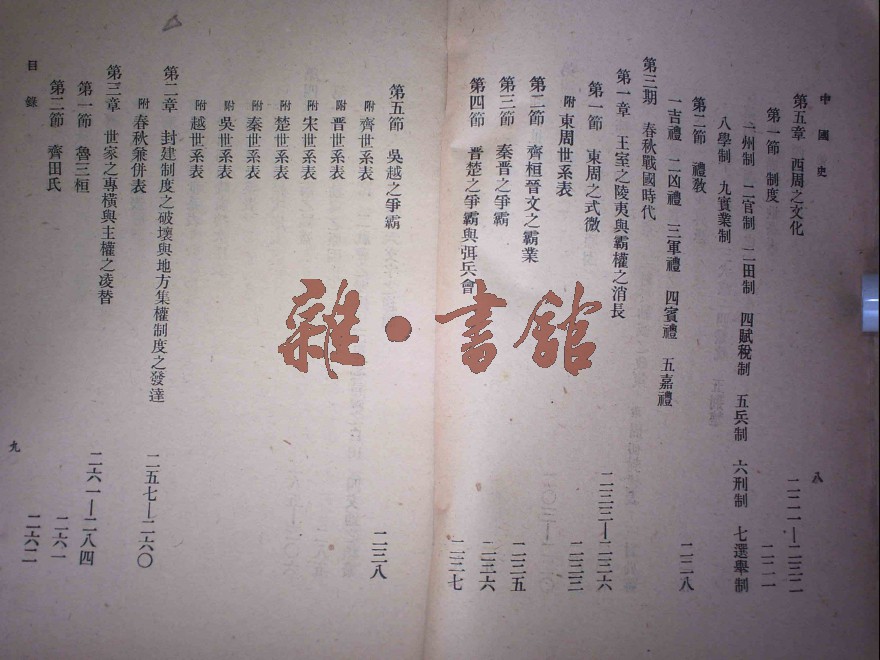 中國史
八
第五章 西周之文化 二二一—二三二
第一節 制度 二二一
一州制 二官制 三田制 四賦稅制 五兵制 六刑制 七選舉制
八學制 九實業制
第二節 禮敎 二二八
一吉禮 二凶禮 三軍禮 四賓禮 五嘉禮
第三期 春秋戰國時代
第一章 王室之陵夷與霸權之消長 二三三—二三六
第一節 東周之式微 二三三
附 東周世系表
第二節 齊桓晉文之霸業 二三五
第三節 秦晉之爭霸 二三六
第四節 晉楚之爭霸與弭兵會 二三七
第五節 吳越之爭霸 二三八
附 齊世系表
附 晉世系表
附 宋世系表
附 楚世系表
附 秦世系表
附 吳世系表
附 越世系表
第二章 封建制度之破壞與地方集權制度之發達
附 春秋兼併表 二五七—二六〇
第三章 世家之專橫與主權之凌替 二六一—二八四
第一節 魯三桓 二六一
第二節 齊田氏 二六二
目錄
九
雜·書館